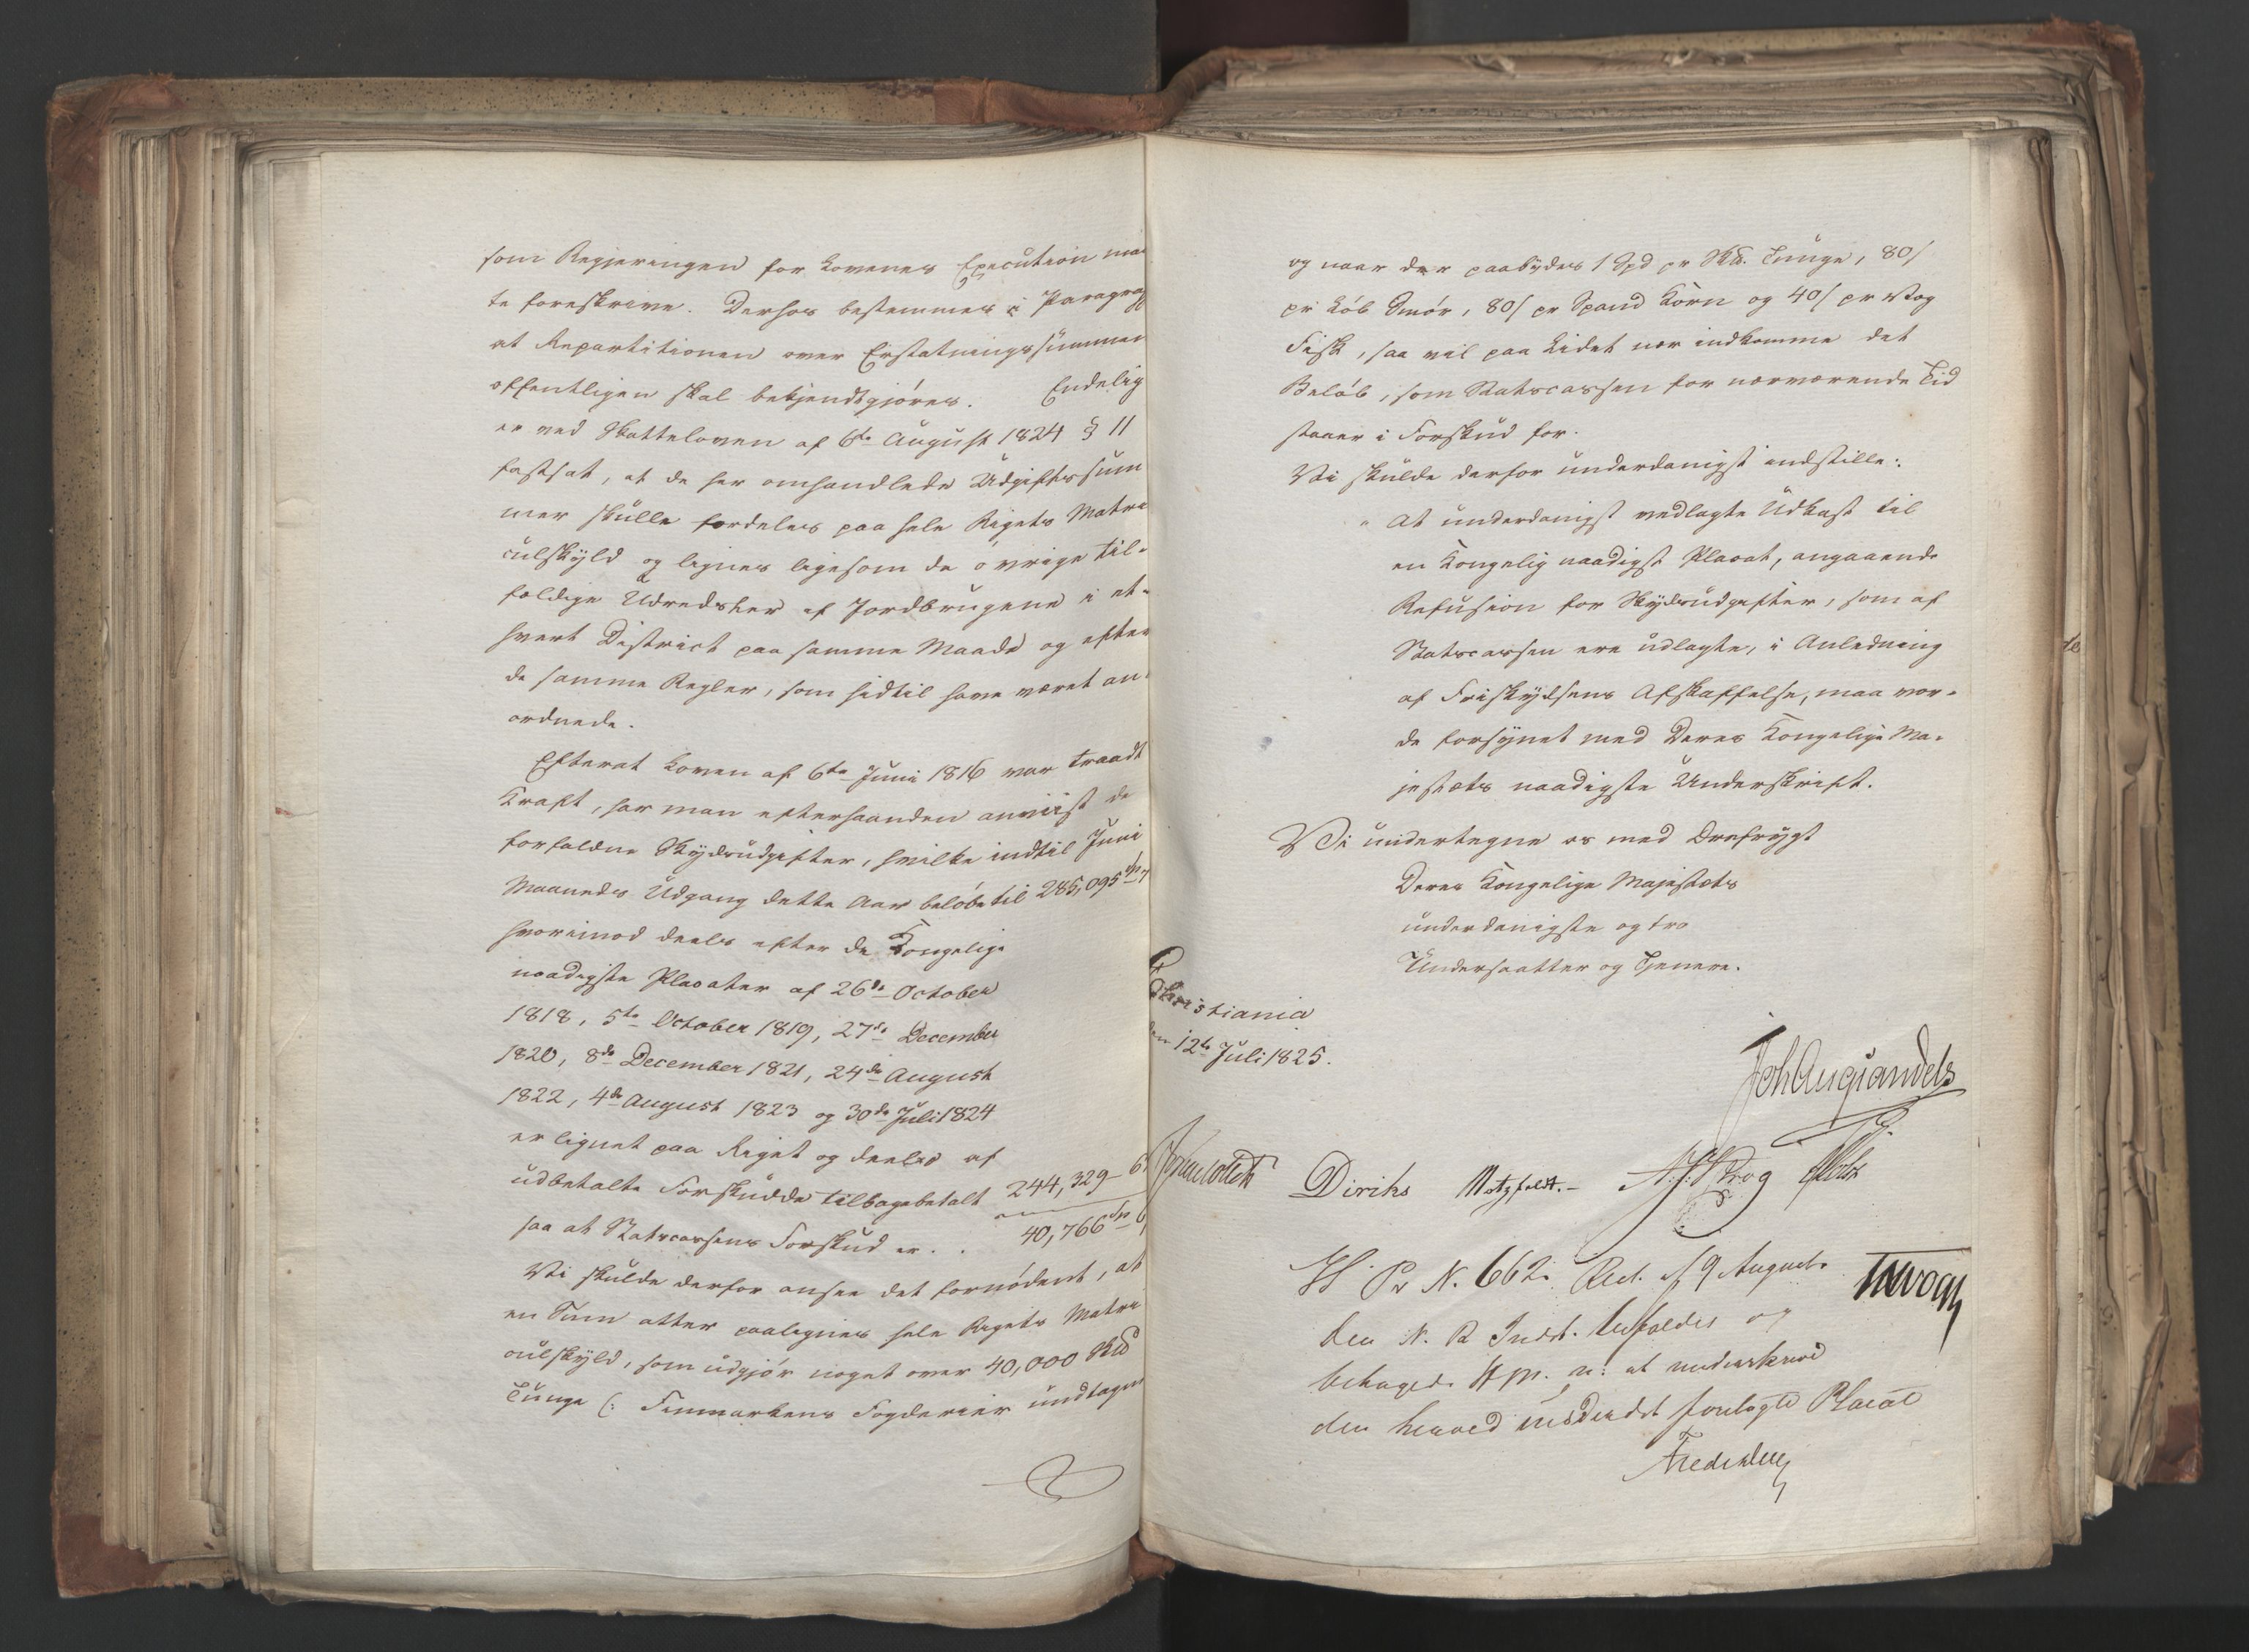 som Regjeringen for Lovenes Execution maa
te foreskrive. Derhos bestemmes i Paragrap
at Repartitionen over Erstatningssummen
offentligen skal bekjendtgjøres. Endelig
er ved Skatteloven af 6te August 1824 § 11
fastsat, at de her omhandlede Udgiftssum
mer skulle fordeles paa hele Rigets Matri
culskyld og lignes ligesom de øvrige til-
fældige Udredsler af Jordbrugene i et-
hvert District paa samme Maade og efter
de samme Regler, som hidtil have været an-
ordnede.
Efterat Loven af 6te Juni 1816 var traadt
Kraft, har man efterhaanden anviist de
forfaldne Skydsudgifter, hvilke indtil Juni
Maaneds Udgang dette Aar beløbe til 285,095 Sp
hvorimod deels efter de Kongelige
naadigste Placater af 26de October
1818, 5te October 1819, 27de December
1820, 8de December 1821, 24de August
1822, 4de August 1823 og 30de Juli 1824
er lignet paa Riget og deels af
udbetalte Forskudde tilbagebetalt 244,329- 6
saa at Statscassens Forskud er . . 40,766 Sp
Vi skulde derfor ansee det fornødent, at
en Sum atter paalignes hele Rigets Matri
culskyld, som udgjør noget over 40,000 Skd
Tunge (: Finmarkens Fogderier undtagen
og naar der paabydes 1 Spd pr Skd. Tunge, 80/
pr Løb Smør, 80/ pr Spand Korn og 40/ pr Vog
Fisk, saa vil paa Lidet nær indkomme det
Beløb, som Statscassen for nærværende Tid
staaer i Forskud for.
Vi skulde derfor underdanigst indstille:
" At underdanigst vedlagte Udkast til
en Kongelig naadigst Placat, angaaende
Refusion for Skydsudgifter, som af
Statscassen ere udlagte, i Anledning
af Friskydsens Afskaffelse, maa vor-
de forsynet med Deres Kongelige Ma-
jestæts naadigste Underskrift.
Vi undertegne os med Ærefrygt
Deres Kongelige Majestæts
underdanigste og tro
Undersaatter og Tjenere.
Christiania
den 12te Juli 1825.
Joh Aug Sandels
Diriks Motzfeldt.- Holst
H Pr N. 662. Res. af 9 August
den N. R Indst. bifaldes og
behagede HM. n: at underskrive
den herved underdst forelagte Placat